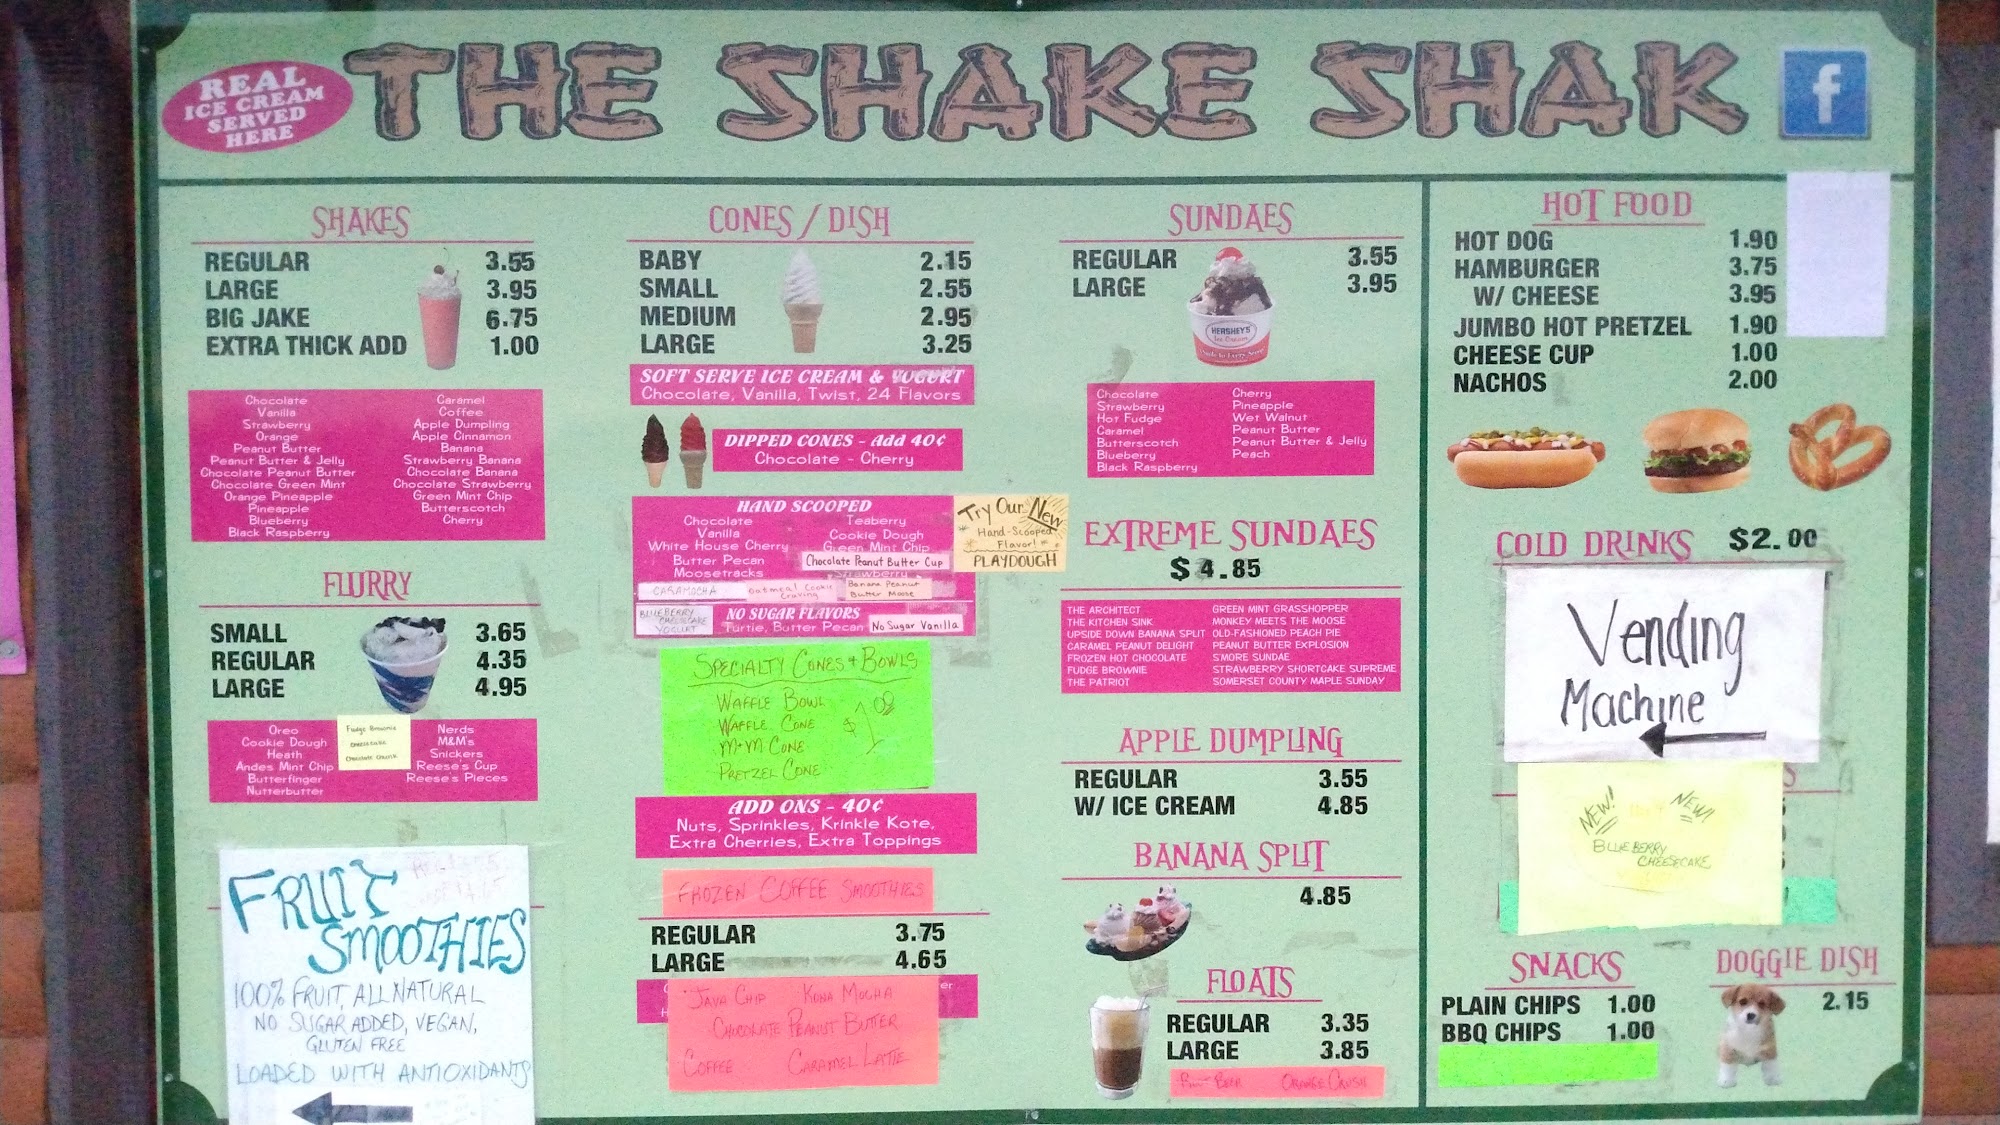 REAL
ICE CREAM
SERVED
HERE
THE SHAKE SHAK
f
SHAKES
REGULAR 3.55
LARGE 3.95
BIG JAKE 6.75
EXTRA THICK ADD 1.00
Chocolate Caramel
Vanilla Coffee
Strawberry Apple Dumpling
Orange Apple Cinnamon
Peanut Butter Banana
Peanut Butter & Jelly Strawberry Banana
Chocolate Peanut Butter Chocolate Banana
Chocolate Green Mint Chocolate Strawberry
Orange Pineapple Green Mint Chip
Pineapple Butterscotch
Blueberry Cherry
Black Raspberry
FLURRY
SMALL 3.65
REGULAR 4.35
LARGE 4.95
Oreo
Cookie Dough
Heath
Andes Mint Chip
Butterfinger
Nutterbutter
Fudge Brownie
Cheesecake
Chocolate Chunk
Nerds
M&M's
Snickers
Reese's Cup
Reese's Pieces
FRUIT
SMOOTHIES
100% FRUIT, ALL NATURAL
NO SUGAR ADDED, VEGAN,
GLUTEN FREE
LOADED WITH ANTIOXIDANTS
CONES / DISH
BABY 2.15
SMALL 2.55
MEDIUM 2.95
LARGE 3.25
SOFT SERVE ICE CREAM & YOGURT
Chocolate, Vanilla, Twist, 24 Flavors
DIPPED CONES - Add 40¢
Chocolate - Cherry
HAND SCOOPED
Chocolate Teaberry
Vanilla Cookie Dough
White House Cherry Green Mint Chip
Butter Pecan Chocolate Peanut Butter Cup
Moosetracks Strawberry
CARAMOCHA Oatmeal Cookie Craving
Banana Peanut
Butter Moose
BLUEBERRY
CHEESECAKE
YOGURT
NO SUGAR FLAVORS
Turtle, Butter Pecan No Sugar Vanilla
Try Our New
Hand-Scooped
Flavor!
PLAYDOUGH
SPECIALTY CONES + BOWLS
WAFFLE BOWL
WAFFLE CONE
M+M CONE
PRETZEL CONE
$1.00
ADD ONS - 40¢
Nuts, Sprinkles, Krinkle Kote,
Extra Cherries, Extra Toppings
FROZEN COFFEE SMOOTHIES
REGULAR 3.75
LARGE 4.65
JAVA CHIP KONA MOCHA
CHOCOLATE PEANUT BUTTER
COFFEE CARAMEL LATTE
SUNDAES
REGULAR 3.55
LARGE 3.95
HERSHEY'S
Ice Cream
Chocolate Cherry
Strawberry Pineapple
Hot Fudge Wet Walnut
Caramel Peanut Butter
Butterscotch Peanut Butter & Jelly
Blueberry Peach
Black Raspberry
EXTREME SUNDAES
$4.85
THE ARCHITECT GREEN MINT GRASSHOPPER
THE KITCHEN SINK MONKEY MEETS THE MOOSE
UPSIDE DOWN BANANA SPLIT OLD-FASHIONED PEACH PIE
CARAMEL PEANUT DELIGHT PEANUT BUTTER EXPLOSION
FROZEN HOT CHOCOLATE S'MORE SUNDAE
FUDGE BROWNIE STRAWBERRY SHORTCAKE SUPREME
THE PATRIOT SOMERSET COUNTY MAPLE SUNDAY
APPLE DUMPLING
REGULAR 3.55
W/ ICE CREAM 4.85
BANANA SPLIT
4.85
FLOATS
REGULAR 3.35
LARGE 3.85
ROOT BEER ORANGE CRUSH
HOT FOOD
HOT DOG 1.90
HAMBURGER 3.75
W/ CHEESE 3.95
JUMBO HOT PRETZEL 1.90
CHEESE CUP 1.00
NACHOS 2.00
COLD DRINKS $2.00
Vending
Machine
NEW! NEW!
BLUEBERRY
CHEESECAKE
SNACKS
PLAIN CHIPS 1.00
BBQ CHIPS 1.00
DOGGIE DISH
2.15